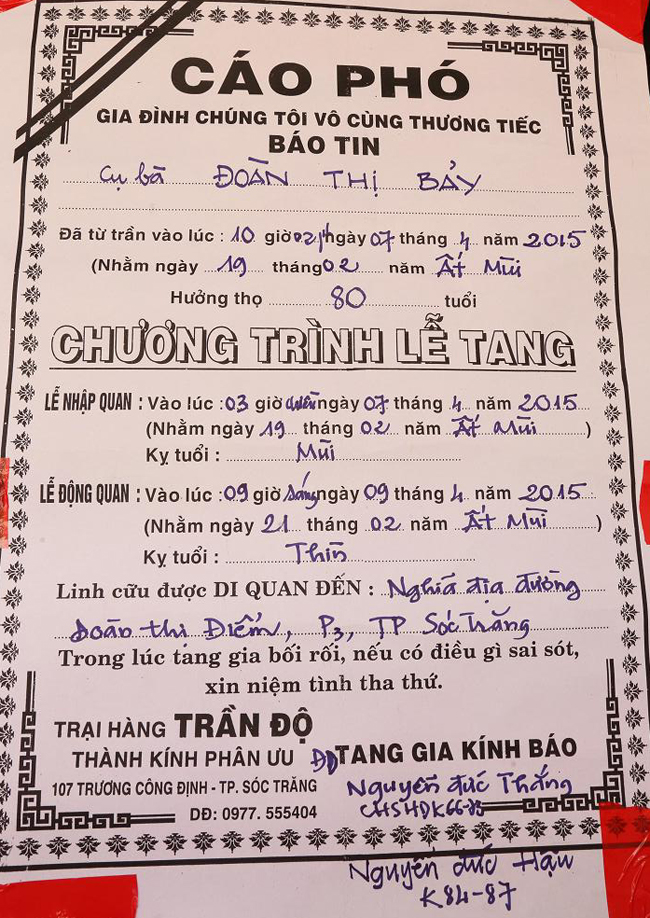 CÁO PHÓ
GIA ĐÌNH CHÚNG TÔI VÔ CÙNG THƯƠNG TIẾC
BÁO TIN
Cụ bà ĐOÀN THỊ BẢY
Đã từ trần vào lúc : 10 giờ 02 ngày 07 tháng 4 năm 2015
(Nhằm ngày 19 tháng 02 năm Ất Mùi
Hưởng thọ 80 tuổi
CHƯƠNG TRÌNH LỄ TANG
LỄ NHẬP QUAN : Vào lúc : 03 giờ chiều ngày 07 tháng 4 năm 2015
(Nhằm ngày 19 tháng 02 năm Ất Mùi )
Kỵ tuổi : Mùi
LỄ ĐỘNG QUAN : Vào lúc : 09 giờ sáng ngày 09 tháng 4 năm 2015
(Nhằm ngày 21 tháng 02 năm Ất Mùi )
Kỵ tuổi : Thìn
Linh cữu được DI QUAN ĐẾN : Nghĩa địa đường
Đoàn thị Điểm, P3, TP Sóc Trăng
Trong lúc tang gia bối rối, nếu có điều gì sai sót,
xin niệm tình tha thứ.
TRẠI HÀNG TRẦN ĐỘ
THÀNH KÍNH PHÂN ƯU
107 TRƯƠNG CÔNG ĐỊNH - TP. SÓC TRĂNG
DĐ: 0977. 555404
ĐD TANG GIA KÍNH BÁO
Nguyễn đức Thắng
CHSHDK66-73
Nguyễn đức Hậu
K84-87